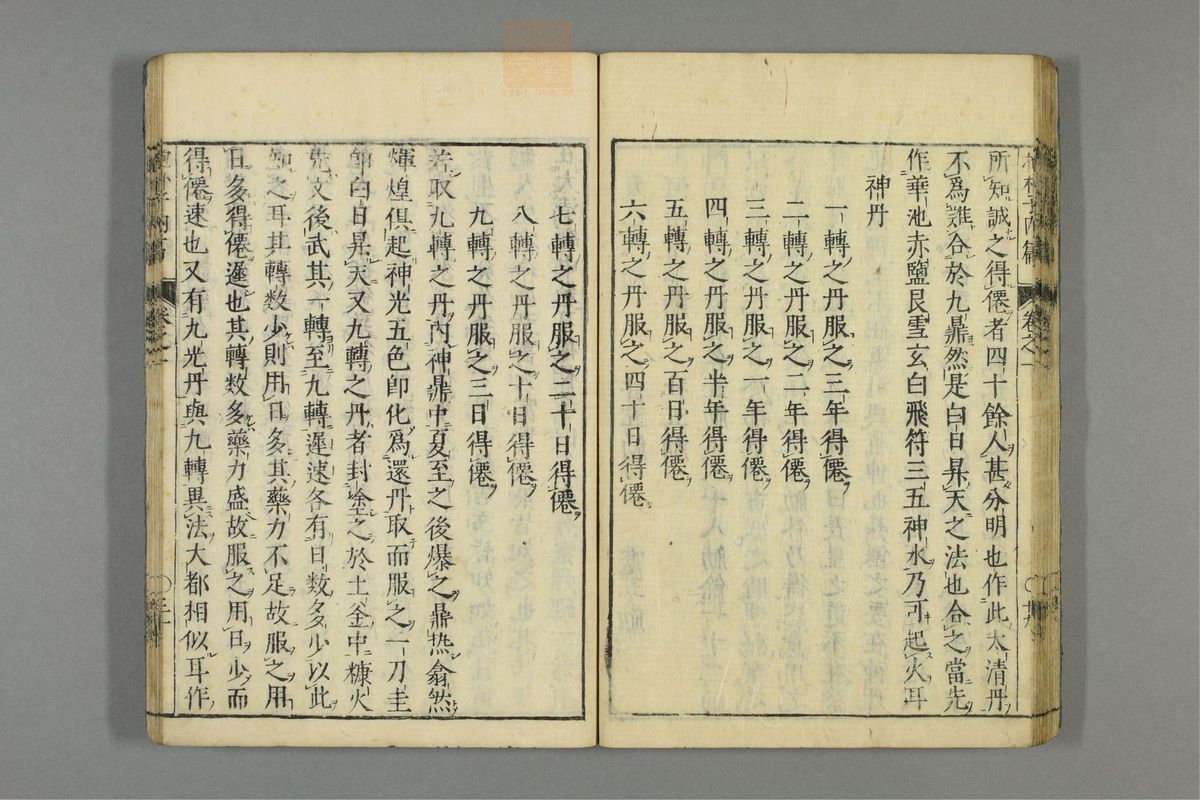 所知誠之得僊者四十餘人甚分明也作此太清丹
不爲難合於九鼎然是白日昇天之法也合之當先
作華池赤鹽艮雪玄白飛符三五神水乃可起火耳
神丹
一轉之丹服之三年得僊
二轉之丹服之二年得僊
三轉之丹服之一年得僊
四轉之丹服之半年得僊
五轉之丹服之百日得僊
六轉之丹服之四十日得僊
七轉之丹服之二十日得僊
八轉之丹服之十日得僊
九轉之丹服之三日得僊
若取九轉之丹內神鼎中夏至之後爆之鼎热翕然
煇煌俱起神光五色卽化爲還丹取而服之一刀圭
卽白日昇天又九轉之丹者封塗之於土釜中糠火
先文後武其一轉至九轉遲速各有日数多少以此
知之耳其轉数少則用日多其藥力不足故服之用
日多得僊遲也其轉数多藥力盛故服之用日少而
得僊速也又有九光丹與九轉異法大都相似耳作
卷之一
zysj.com.cn